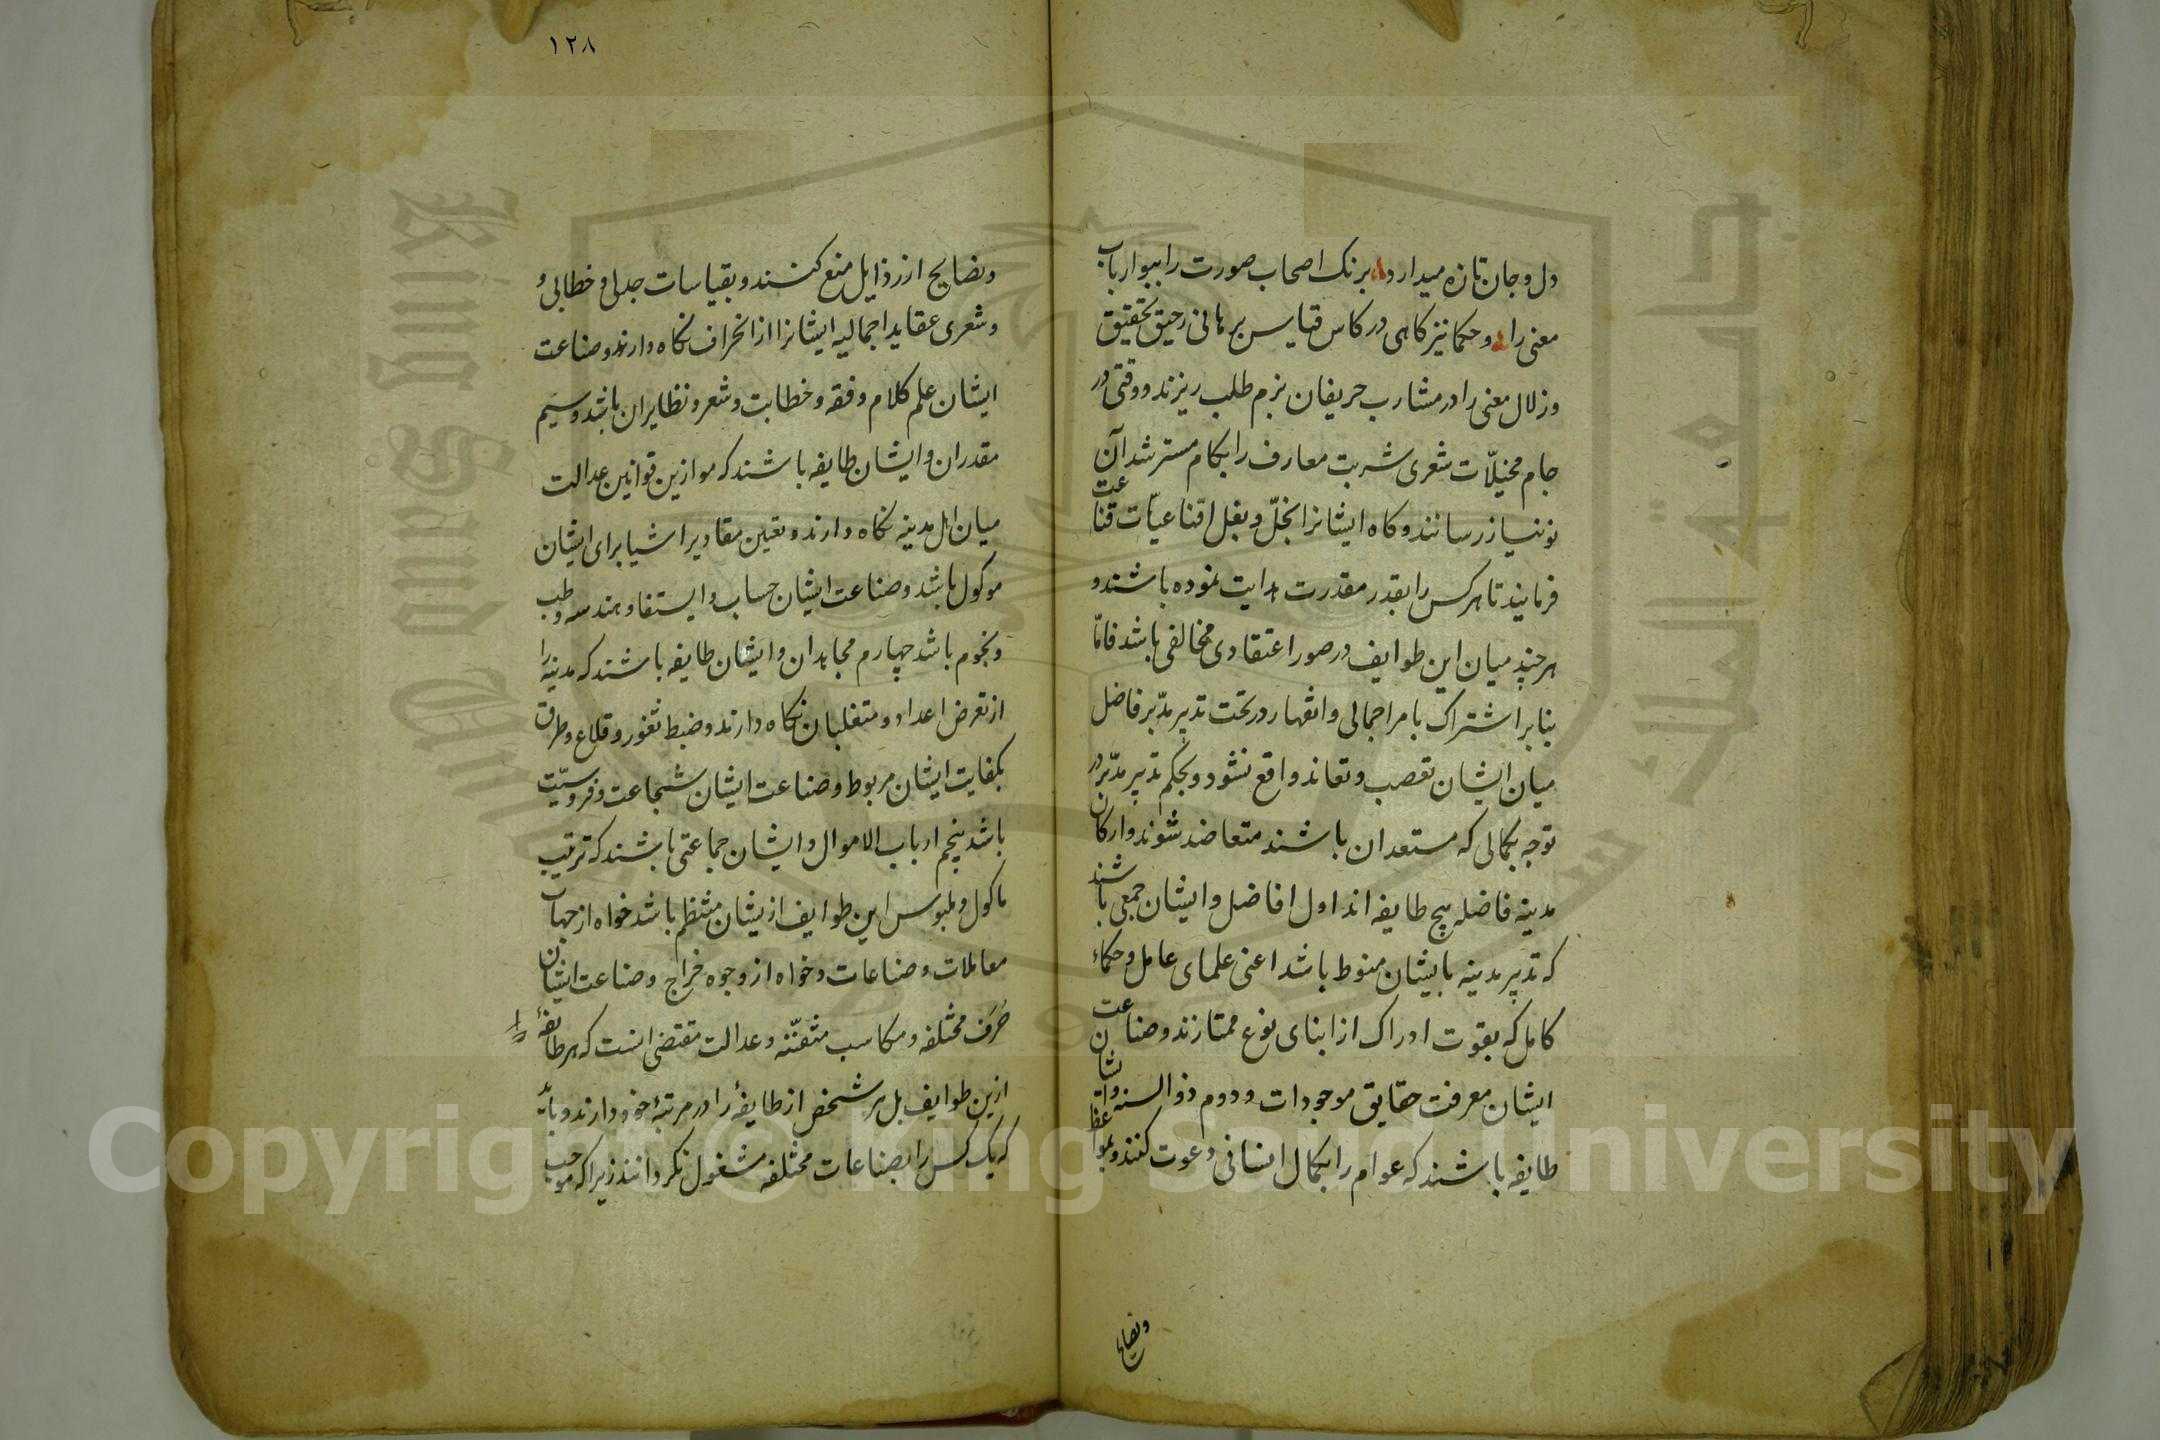 دل و جان تازه میدارد برنک اصحاب صورت را ببو ارباب
معنی را و حکما نیز کاهی در کاس قیاس برهانی رحیق تحقیق
و زلال معنی را در مشارب حریفان بزم طلب ریزند و وقتی در
جام مخیلّات شعری شربت معارف را بکام مسترشدان
نونیاز رسانند و کاه ایشانرا بخلّ و بقل اقناعیّات قناعت
فرمایند تا هر کس را بقدر مقدرت هدایت نموده باشند و
هر چند میان این طوایف در صور اعتقادی مخالفی باشد فامّا
بنا بر اشتراک بامر اجمالی و انقهار در تحت تدبیر مدّبر فاضل
میان ایشان تعصب و تعاند واقع نشود و بحکم تدبیر مدّبر در
توجه بکمالی که مستعد ان باشند متعاضد شوند و ارکان
مدینه فاضله پنج طایفه اند اول افاضل و ایشان جمعی باشند
که تدبیر مدینه بایشان منوط باشد اعنی علمای عامل و حکماء
کامل که بقوت ادراک از ابنای نوع ممتازند و صناعت
ایشان معرفت حقایق موجودات و دوم ذوالسنه و ایشان
طایفه باشند که عوام را بکمال انسانی دعوت کنند و بمواعظ
و نصایح
١٢٨
و نصایح از رذایل منع کنند و بقیاسات جدلی و خطابی و
و شعری عقاید اجمالیه ایشانرا از انحراف نکاه دارند و صناعت
ایشان علم کلام و فقه و خطابت و شعر و نظایر ان باشد و سیم
مقدران و ایشان طایفه باشند که موازین قوانین عدالت
میان اهل مدینه نکاه دارند و تعیین مقادیر اشیا برای ایشان
موکول باشد و صناعت ایشان حساب و استیفا و هندسه و طب
و نجوم باشد چهارم مجاهدان و ایشان طایفه باشند که مدینه را
از تعرض اعداد و متغلبان نکاه دارند و ضبط ثغور و قلاع و طرق
بکفایت ایشان مربوط و صناعت ایشان شجاعت و فروسیّت
باشد پنجم ارباب الاموال و ایشان جماعتی باشند که ترتیب
ماکول و ملبوس این طوایف ازیشان منتظم باشد خواه از جهات
معاملات و صناعات و خواه از وجوه خراج و صناعت ایشان
حِرَف مختلفه و مکاسب متفنّنه و عدالت مقتضی انست که هر طایفهٔ را
ازین طوایف بل هر شخص از طایفهٔ را در مرتبهٔ خود دارند و باید
که یک کس را بصناعات مختلفه مشغول نکردانند زیرا که موجب
Copyright © King Saud University
King Saud University
جامعة الملك سعود